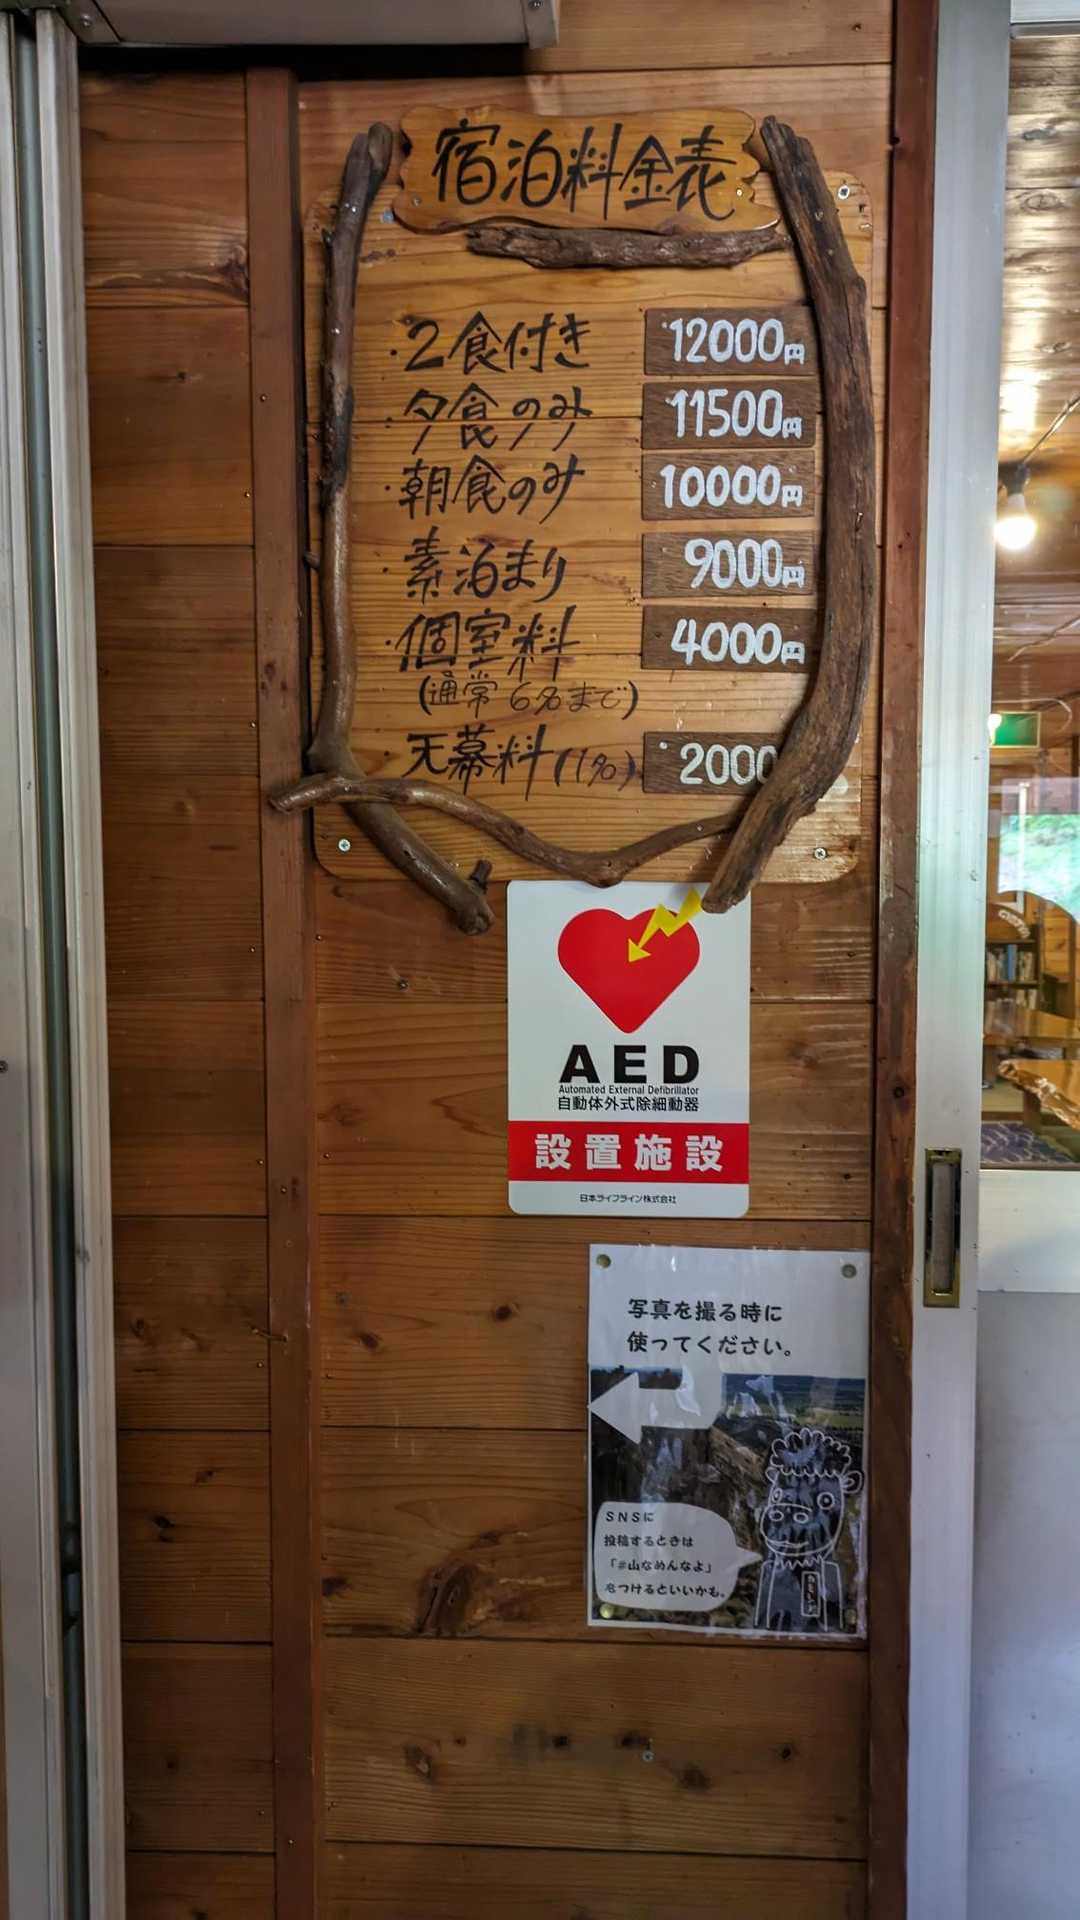 宿泊料金表
・2食付き 12000円
・夕食のみ 11500円
・朝食のみ 10000円
・素泊まり 9000円
・個室料 4000円
(通常 6名まで)
・天幕料(1名) 2000
AED
Automated External Defibrillator
自動体外式除細動器
設置施設
日本ライフライン株式会社
写真を撮る時に
使ってください。
SNSに
投稿するときは
「#山なめんなよ」
をつけるといいかも。